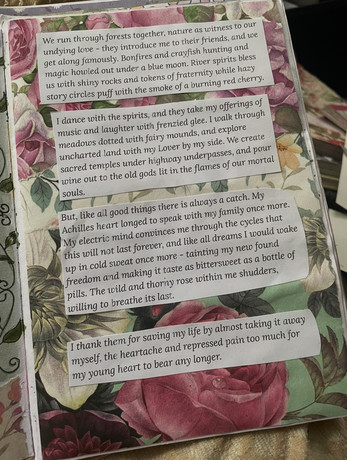 We run through forests together, nature as witness to our
undying love - they introduce me to their friends, and we
get along famously. Bonfires and crayfish hunting and
magic howled out under a blue moon. River spirits bless
us with shiny rocks and tokens of fraternity while hazy
story circles puff with the smoke of a burning red cherry.
I dance with the spirits, and they take my offerings of
music and laughter with frenzied glee. I walk through
meadows dotted with fairy mounds, and explore
uncharted land with my Lover by my side. We create
sacred temples under highway underpasses, and pour
wine out to the old gods lit in the flames of our mortal
souls.
But, like all good things there is always a catch. My
Achilles heart longed to speak with my family once more.
My electric mind convinces me through the cycles that
this will not last forever, and like all dreams I would wake
up in cold sweat once more - tainting my new found
freedom and making it taste as bittersweet as a bottle of
pills. The wild and thorny rose within me shudders,
willing to breathe its last.
I thank them for saving my life by almost taking it away
myself, the heartache and repressed pain too much for
my young heart to bear any longer.